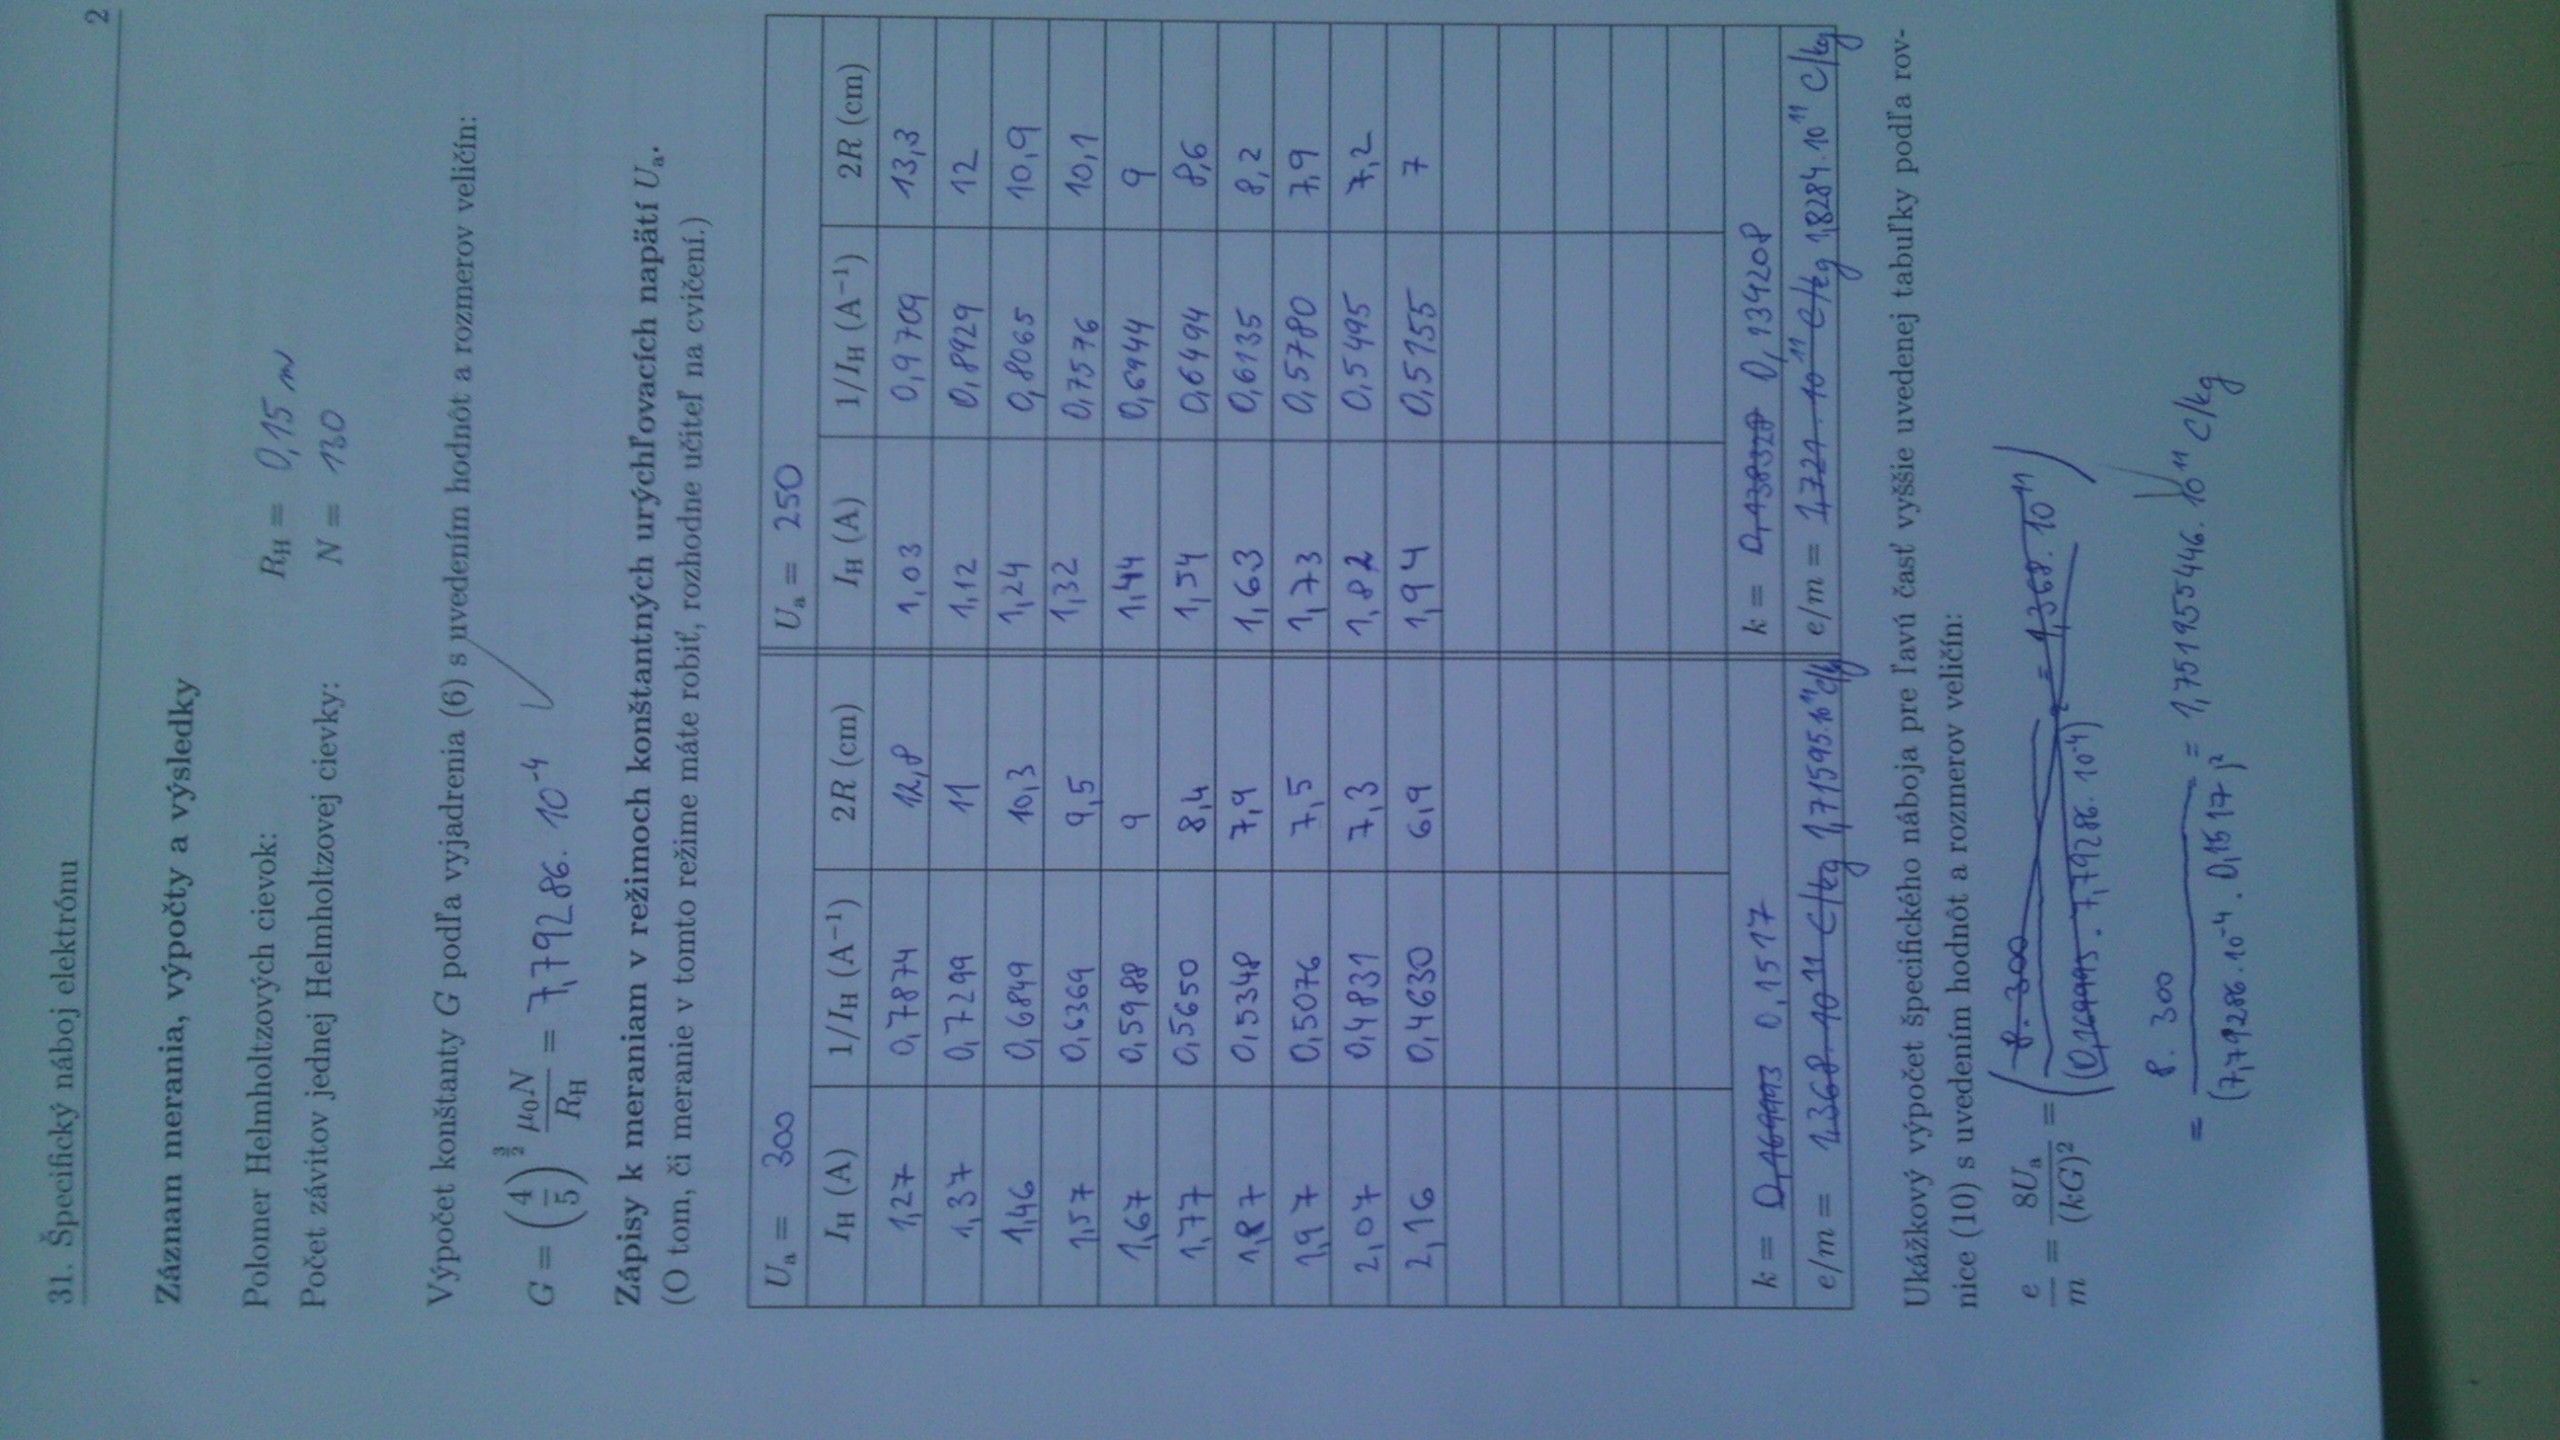 31. Špecifický náboj elektrónu 2
Záznam merania, výpočty a výsledky
Polomer Helmholtzových cievok: R_H = 0,15 m
Počet závitov jednej Helmholtzovej cievky: N = 130
Výpočet konštanty G podľa vyjadrenia (6) s uvedením hodnôt a rozmerov veličín:
G = (4/5)^(3/2) μ₀N/R_H = 7,79286. 10⁻⁴
Zápisy k meraniam v režimoch konštantných urýchľovacích napätí U_a.
(O tom, či meranie v tomto režime máte robiť, rozhodne učiteľ na cvičení.)
U_a = 300 U_a = 250
I_H (A) 1/I_H (A⁻¹) 2R (cm) I_H (A) 1/I_H (A⁻¹) 2R (cm)
1,27 0,7874 12,8 1,03 0,9709 13,3
1,37 0,7299 11 1,12 0,8929 12
1,46 0,6849 10,3 1,24 0,8065 10,9
1,57 0,6369 9,5 1,32 0,7576 10,1
1,67 0,5988 9 1,44 0,6944 9
1,77 0,5650 8,4 1,54 0,6494 8,6
1,87 0,5348 7,9 1,63 0,6135 8,2
1,97 0,5076 7,5 1,73 0,5780 7,9
2,07 0,4831 7,3 1,82 0,5495 7,2
2,16 0,4630 6,9 1,94 0,5155 7
k = 0,169993 0,1517 k = 0,138328 0,134208
e/m = 1,368. 10¹¹ C/kg 1,71595.10¹¹ C/kg e/m = 1,721. 10¹¹ C/kg 1,8284.10¹¹ C/kg
Ukážkový výpočet špecifického náboja pre ľavú časť vyššie uvedenej tabuľky podľa rov-
nice (10) s uvedením hodnôt a rozmerov veličín:
e/m = 8U_a/(kG)² = (8. 300/(0,169993. 7,79286. 10⁻⁴)² = 1,368. 10¹¹)
= 8. 300/(7,79286.10⁻⁴. 0,1517)² = 1,715955446. 10¹¹ C/kg